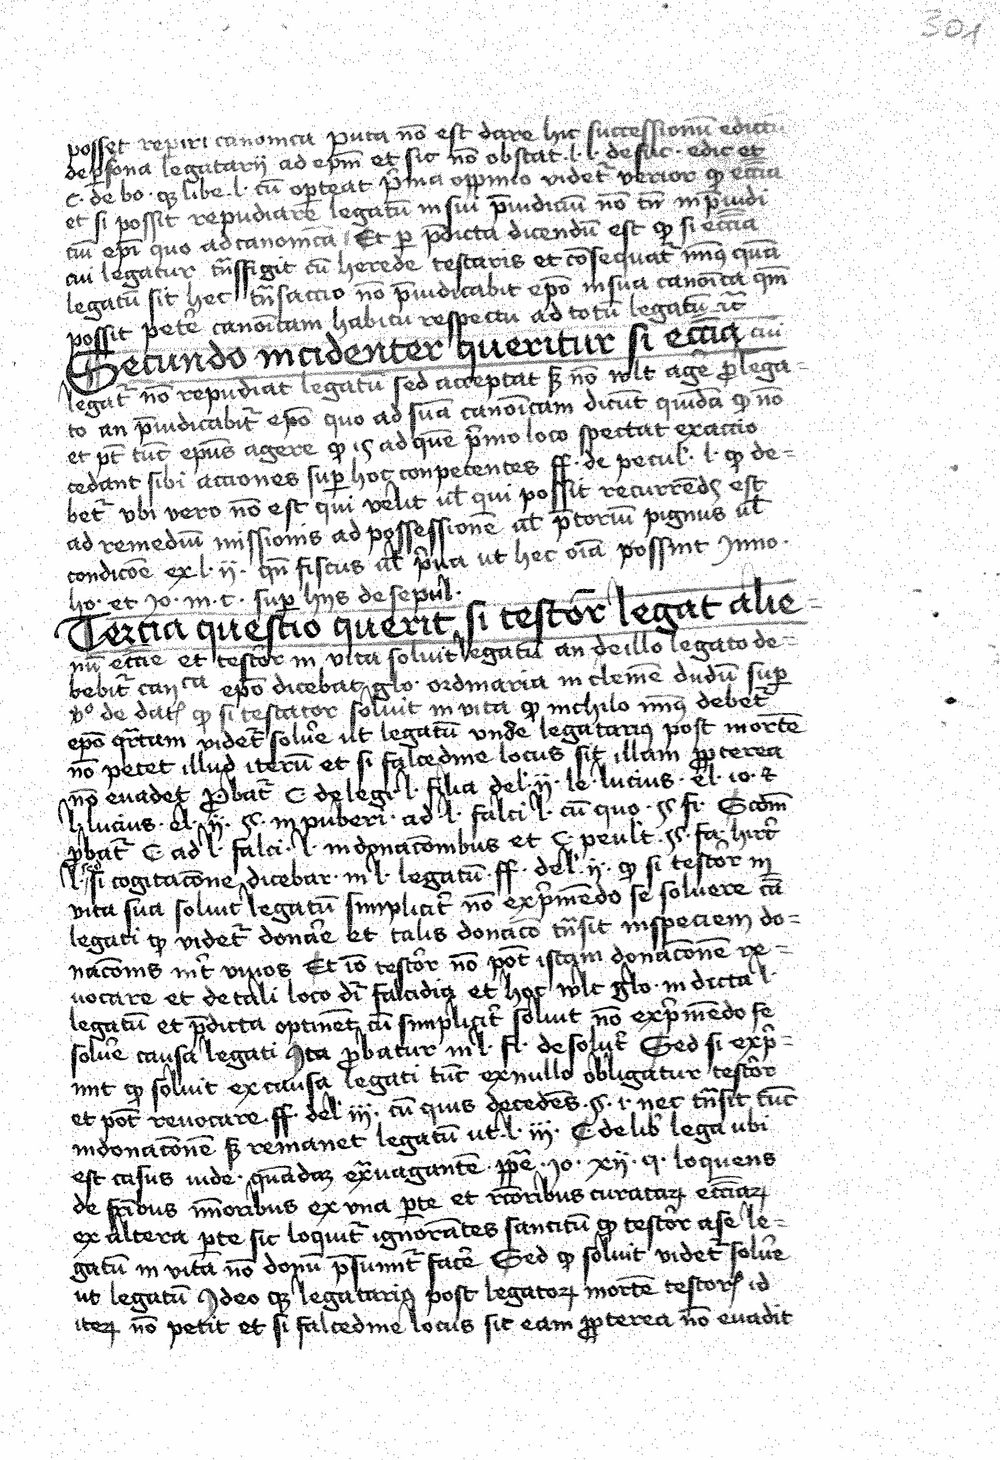 301
posset reperiri canonica puta nō est dare hic successionū edictū
de psona legatarij ad epm̄ et sic nō obstat · l · l · de suc · edic et
c · de bo · q̄ libe · l · cū oporteat p̄ma oppinio videt᷑ verior qꝫ ecc̄ia
et si possit repudiare legatū in sui p̄iudiciū nō tn̄ in p̄iudi
ciū ep̄i quo ad canonica / Et ꝑ p̄dicta dicendū est qꝫ si ecc̄ia
cui legatur tn̄sfigit cū herede testatis et cōsequat᷑ min9 quā
legatū sit hec tn̄saccio nō p̄iudicabit epō in sua canōica qm̄
possit pete᷑ canōicam habitu respectu ad totū legatū ic̄
Secundo incidenter queritur si ecc̄ia cui
legat᷑ nō repudiat legatū sed acceptat sꝫ nō wlt age᷑ ꝓ lega=
to an p̄iudicabit᷑ epō quo ad suā canōicam dicūt quidā qꝫ nō
et pt̄ tūc epūs agere qꝫ is ad quē p̄mo loco spectat exaccio
cedant sibi acciones suꝑ hoc conpetentes ff · de pecul᷑ · l · qꝫ de=
bet᷑ vbi vero nō est qui velit ul᷑ qui possit recurrēdꝫ est
ad remediū missionis ad possessionē ul᷑ p̄toriū pignus ul᷑
condicōe ex · l · ij · qn̄ fiscus ul᷑ p̄ua ut hec oīa possint Inno ·
ho · et Io · in · c · suꝑ hijs de sepul ·
Tercia questio querit si testōr legat alie=
nū ecc̄ie et testōr in vita soluit legatū an de illo legato de=
bebit᷑ can^ca epō dicebat glo · ordinaria in clemē dudū suꝑ
v̄° de dat᷑ qꝫ si testator soluit in vita qꝫ nichilo min9 debet᷑
epō q̄rtam videt᷑ solue᷑ ut legatū vnde legatari9 post mortē
nō petet illud iterū et si falcedine locus sit illam ꝓpterea
nō euadet ꝓbat᷑ C de leg᷑ · l · filia del · ij · le · lucius · el · io · et
l · lucius · el · ij · § · in puberi · ad · l · falci · l · cū quo · § fi · Scdm̄
ꝓbat᷑ C ad · l · falci · l · in donacōnibus et C · peul᷑t · § · fa · hir᷑
l · si cogitacōne dicebar · in · l · legatū · ff · del · ij · qꝫ si testōr in
vita sua soluit legatū simplicit᷑ nō exp̄mēdo se soluere cā
legati qꝫ videt᷑ donae᷑ et talis donacō tn̄sit in speciem do=
nacōnis int᷑ viuos Et iō testōr nō pōt istam donacōnē re=
uocare et de tali loco dī falcidia et hoc wlt glo · in dicta l ·
legatū et p̄dicta optinēt cū simplicit᷑ soluit nō exp̄mēdo se
solue᷑ causa legati Ita ꝓbatur in · l · fi · de solut᷑ Sed si exp̄=
mit qꝫ soluit ex causa legati tūc ex nullo obligatur testōr
et pōt reuocare · ff · del · iij · cū quis decedēs · § · i · nec tn̄sit tūc
in donacōnē sꝫ remanet legatū ut · l · iij · C de lib᷑ lega ubi
est casus vide · quādaꝫ ext᷑uagantē · ppē · Io · xij · q · loquens
de frīb9 minoribus ex vna ꝑte et rc̄oribus curataꝝ ecc̄iaꝝ
ex altera ꝑte sic loquit᷑ ignorātes sancitū qꝫ testōr a se le=
gatū in vitā nō donū p̄sumit᷑ face᷑ Sed qꝫ soluit videt᷑ solue᷑
ut legatū Ideo qꝫ legatari9 post legatoꝝ mortē testorꝭ id
iteꝝ nō petit et si falcedine locus sit eam ꝓpterea nō euadit